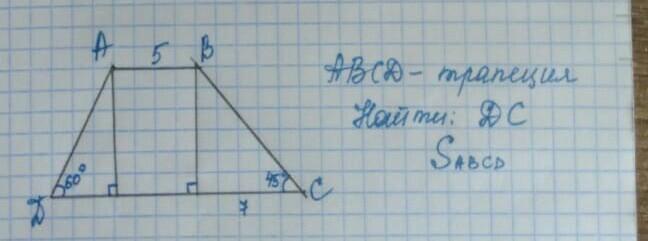 A 5 B
ABCD - трапеция
Найти: DC
S ABCD
60° 45°
D 7 C